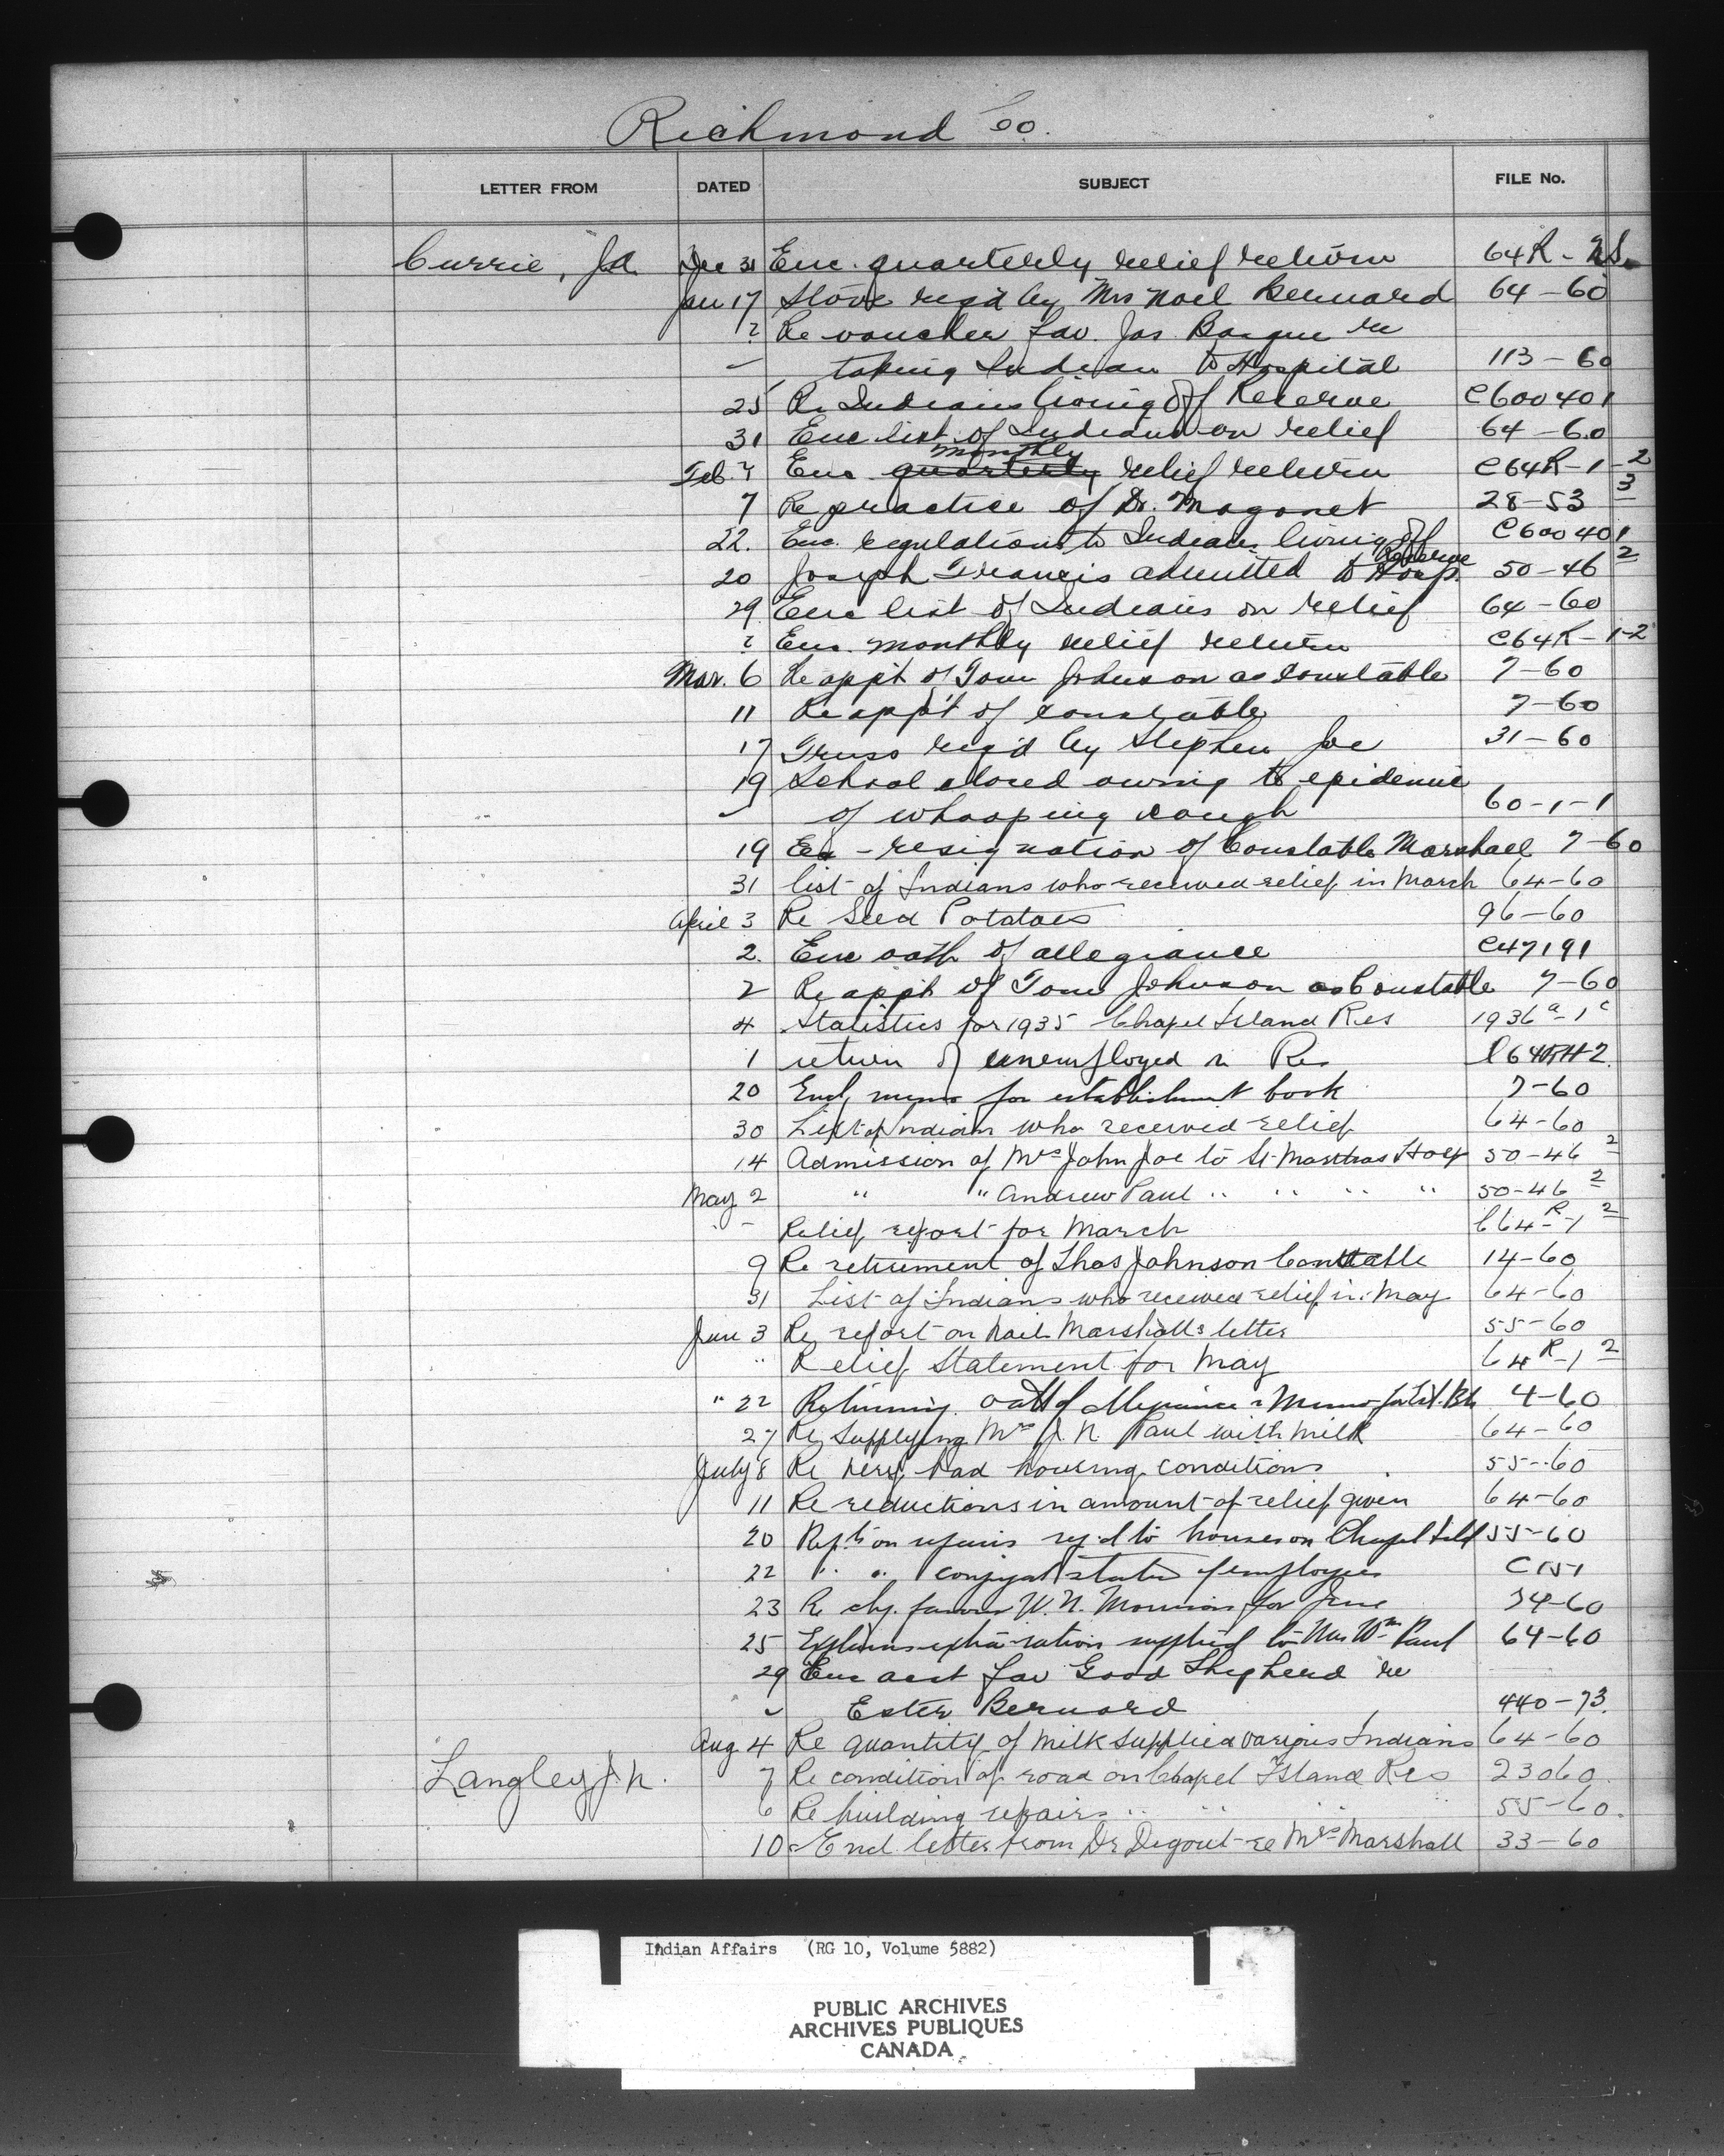 Richmond Co.
LETTER FROM DATED SUBJECT FILE No.
Currie, Jd. Dec 31 Enc. quarterly relief return 64R-
Jan 17 Stove req'd by Mrs Noel Bernard 64-60
? Re voucher fav. Jas. re
" taking Indian to Hospital 113-60
25 Re Indians living off Reserve C600401
31 Enc list of Indians on relief 64-60
Feb. 7 Enc quarterly monthly relief return C64R-1-2
7 Re practice of Dr. Maganet 28-53 3
22. Enc. regulations to Indians living off Reserve C600401
20 Joseph Francis admitted to Hosp. 50-46 2
29 Enc list of Indians on relief 64-60
? Enc. monthly relief return C64R-1-2
Mar. 6 Re app't of Tom Johnson as constable 7-60
11 Re app't of constable 7-60
17 Truss req'd by Stephen Joe 31-60
19 School closed owing to epidemic
" of whooping cough 60-1-1
19 - resignation of Constable Marshall 7-60
31 list of Indians who received relief in March 64-60
April 3 Re Seed Potatoes 96-60
2. Enc oath of allegiance C47191
2 Re app't of Tom Johnson as Constable 7-60
4 Statistics for 1935 Chapel Island Res 1936a-1c
1 return of unemployed on Res
20 Encl, memo for establishment book 7-60
30 List of Indians who received relief 64-60
14 Admission of Mrs John Joe to St Marthas Hosp 50-46 2
May 2 " " Andrew Paul " " " " 50-46 2
" - Relief report for March C64-R-1 2
9 Re retirement of Thos Johnson Constable 14-60
31 List of Indians who received relief in May 64-60
Jun 3 Re report on Marshalls letter 55-60
" Relief Statement for May 64R-1 2
" 22 Returning oath of Allegiance & Memo for Est. Bk 4-60
27 Re supplying Mrs J. N. Paul with milk 64-60
July 8 Re very bad housing conditions 55-60
11 Re reductions in amount of relief given 64-60
20 Rept on repairs req'd to houses on Chapel Isld 55-60
22 " " conjugal status of employees C151
23 Re chq. favour W. N. Morrison for June 74-60
25 Explains extra ration supplied to Mrs Wm Paul 64-60
29 Enc acct fav Good Shepherd re
" Ester Bernard 440-73.
Aug 4 Re quantity of milk supplied various Indians 64-60
Langley J. N. 7 Re condition of road on Chapel Island Res 23060
6 Re building repairs " " " " 55-60.
10 Encl letter from Dr Digout re Mrs Marshall 33-60
Indian Affairs (RG 10, Volume 5882)
PUBLIC ARCHIVES
ARCHIVES PUBLIQUES
CANADA